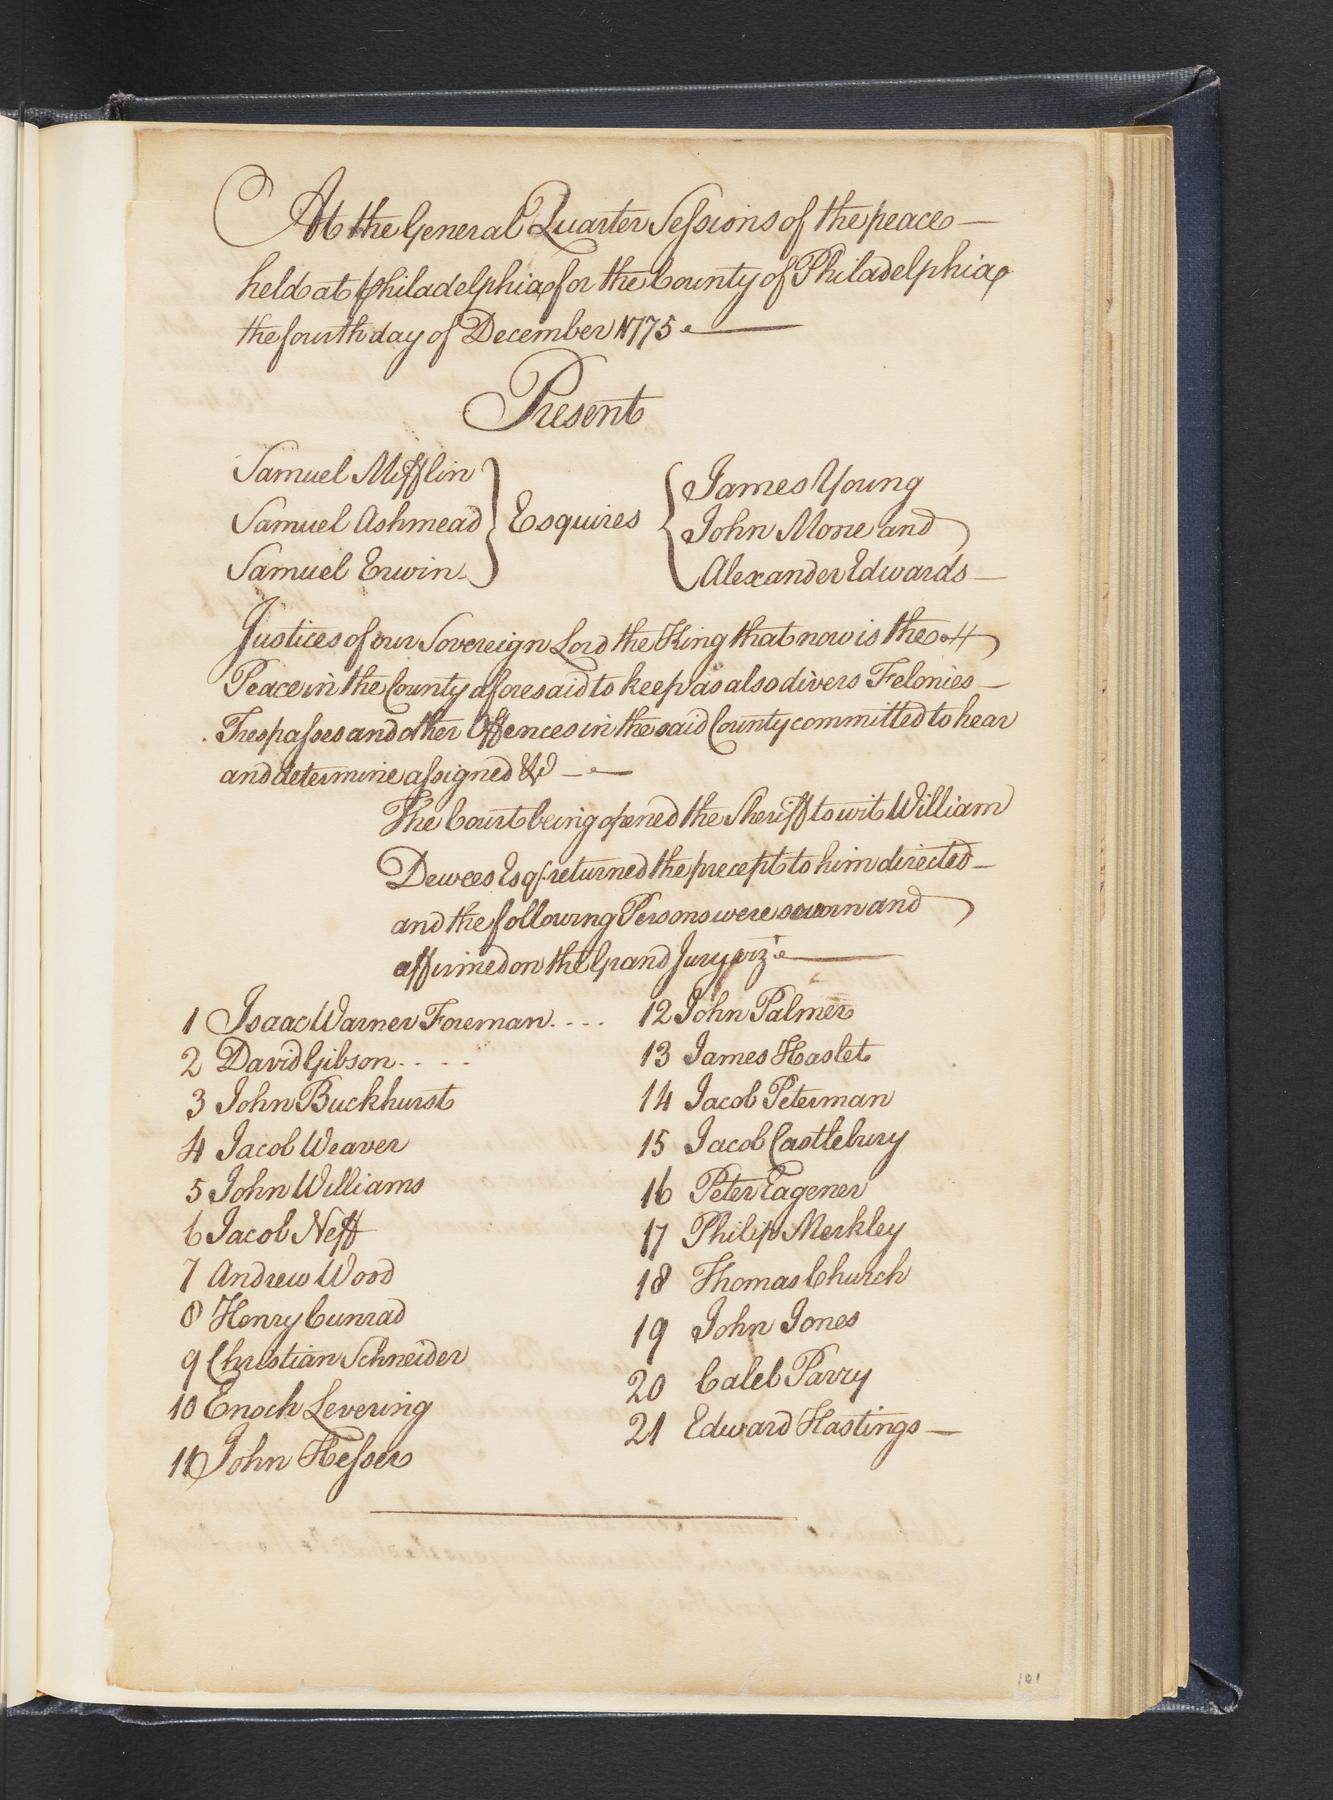 At the General Quarter Sessions of the peace —
held at Philadelphia for the County of Philadelphia
the fourth day of December 1775. —
Present
Samuel Mifflin
Samuel Ashmead
Samuel Erwin.
Esquires
James Young
John More and
Alexander Edwards —
Justices of our Sovereign Lord the King that now is the
Peace in the County aforesaid to keep as also divers Felonies —
Trespasses and other Offences in the said County committed to hear
and determine assigned &c —
The Court being opened the Sheriff to wit William
Dewees Esqr. returned the precept to him directed —
and the following Persons were sworn and
affirmed on the Grand Jury vizt. —
1 Isaac Warner Foreman. . . .
2 David Gibson. . . .
3 John Buckhurst
4 Jacob Weaver
5 John Williams
6 Jacob Neff
7 Andrew Wood
8 Henry Cunrad
9 Christian Schneider
10 Enoch Levering
11 John Hesser
12 John Palmer
13 James Haslet
14 Jacob Peterman
15 Jacob Castlebury
16 Peter Eagener
17 Philip Merkley
18 Thomas Church
19 John Jones
20 Caleb Parry
21 Edward Hastings —
101